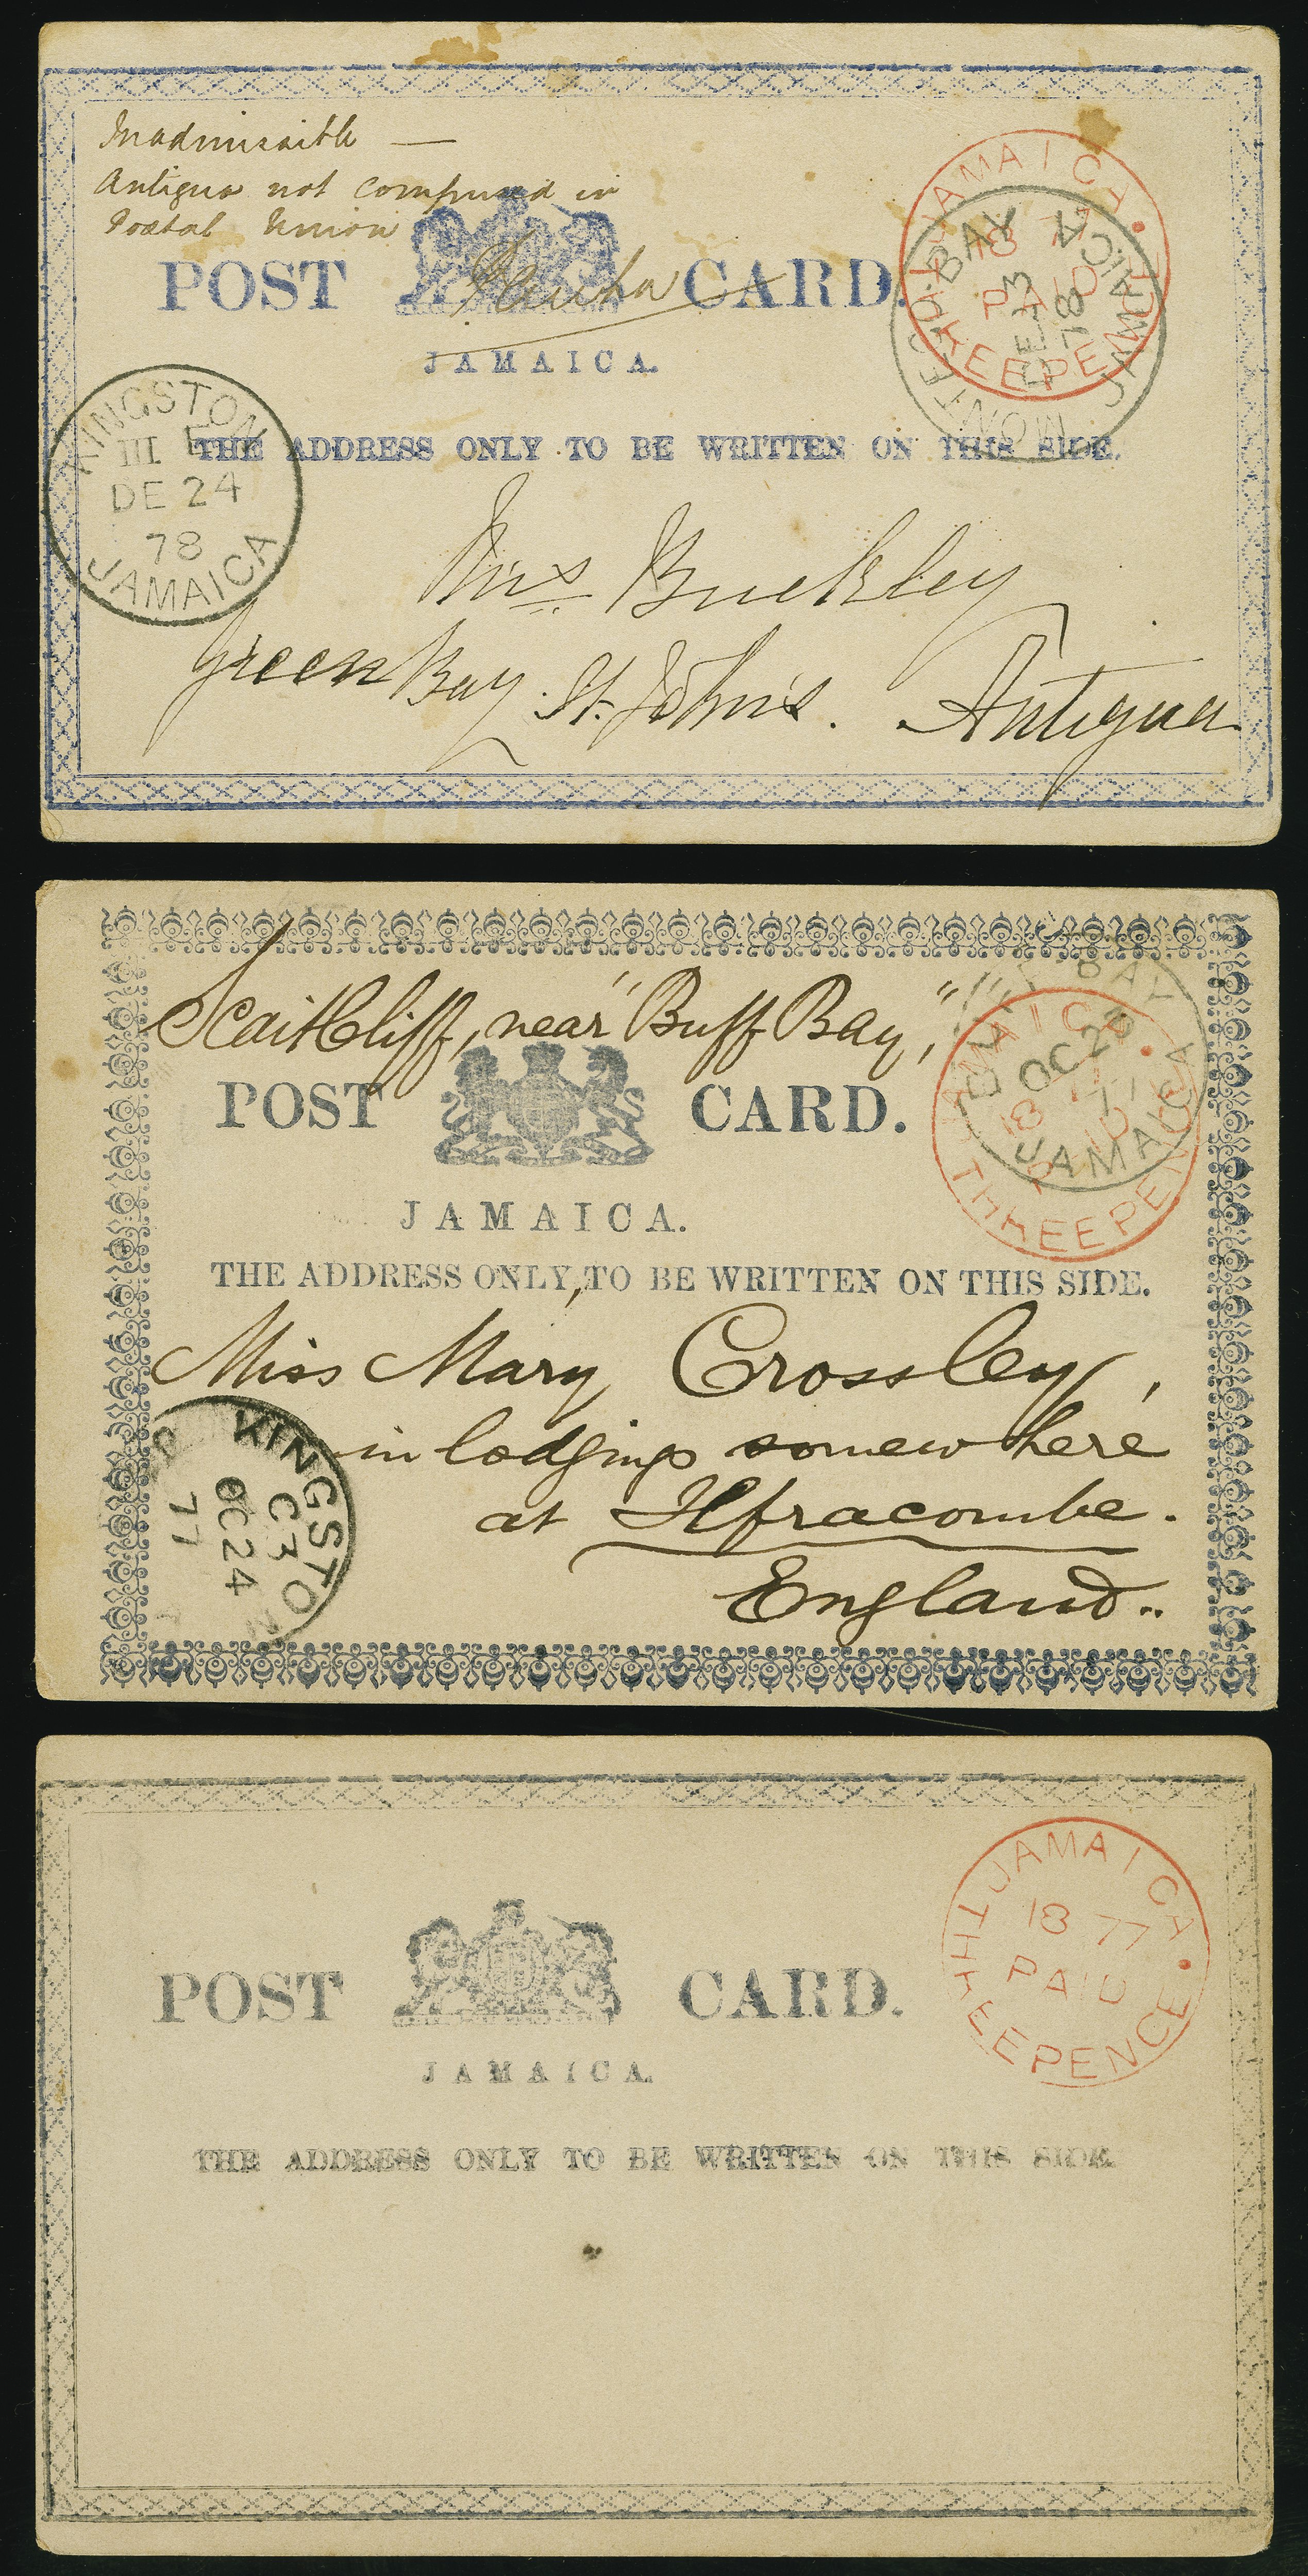 Inadmissible —
Antigua not comprised in
Postal Union
POST CARD.
JAMAICA.
THE ADDRESS ONLY TO BE WRITTEN ON THIS SIDE.
JAMAICA.
18 77
PAID
THREEPENCE
MONTEGO-BAY
DE 23
78
JAMAICA
KINGSTON
III E
DE 24
78
JAMAICA
Mrs Buckley
Green Bay St. John's. Antigua
Scaitcliff, near "Buff Bay,"
POST CARD.
JAMAICA.
THE ADDRESS ONLY, TO BE WRITTEN ON THIS SIDE.
JAMAICA.
18 77
PAID
THREEPENCE
BAY
OC 23
77
JAMAICA
Miss Mary Crossley,
in lodgings somewhere
at Ilfracombe.
England..
KINGSTON
C3
OC 24
77
POST CARD.
JAMAICA.
THE ADDRESS ONLY TO BE WRITTEN ON THIS SIDE.
JAMAICA.
18 77
PAID
THREEPENCE